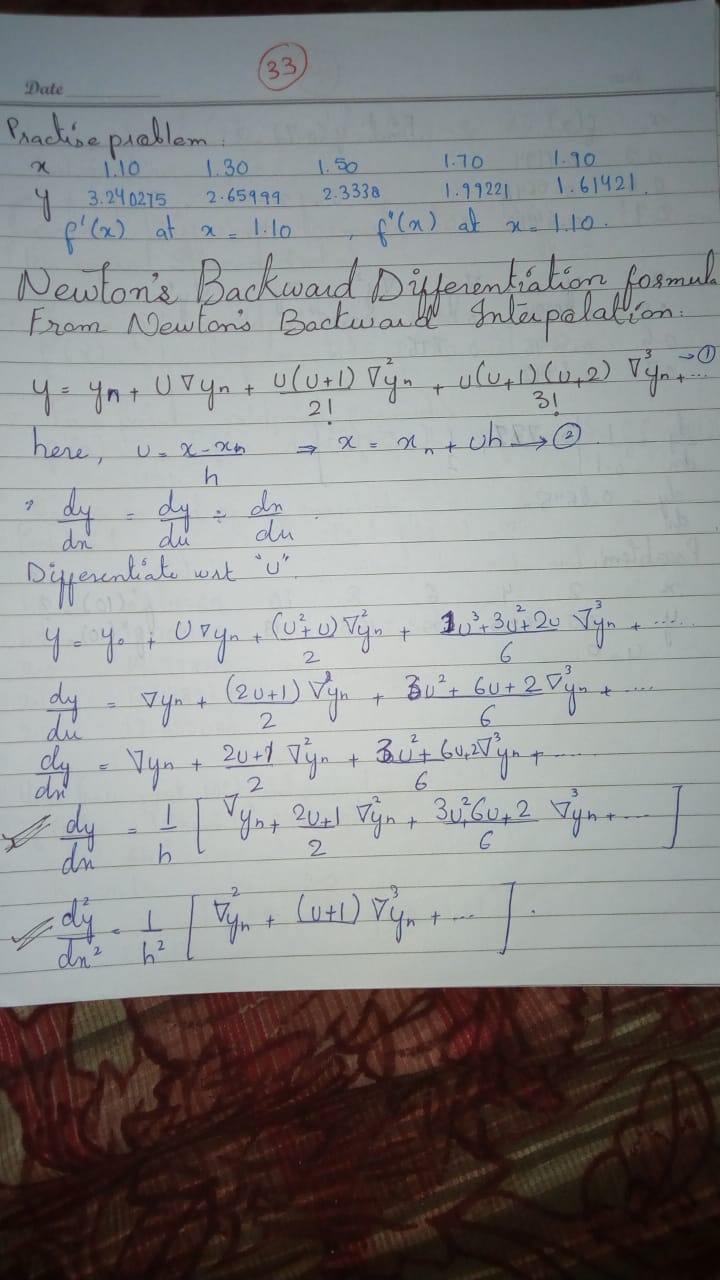 33
Date
Practise problem:
x 1.10 1.30 1.50 1.70 1.90
y 3.240275 2.65999 2.3338 1.99221 1.61421.
f'(x) at x = 1.10 , f"(x) at x = 1.10.
Newton's Backward Differentiation formula
From Newton's Backward Interpolation:
y = yn + U∇yn + U(U+1)/2! ∇²yn + U(U+1)(U+2)/3! ∇³yn + ... → ①
here, U = x-xn/h ⇒ x = xn + uh → ②
dy/dx = dy/du ÷ dx/du.
Differentiate wrt "U".
y = y₀ + U∇yn + (U²+U)/2 ∇²yn + 1u³+3u²+2u/6 ∇³yn + ....
dy/du = ∇yn + (2u+1)/2 ∇²yn + 3u²+6u+2/6 ∇³yn + ....
dy/dx = ∇yn + 2u+1/2 ∇²yn + 3u²+6u+2/6 ∇³yn + ....
dy/dx = 1/h [ ∇yn + 2u+1/2 ∇²yn + 3u²+6u+2/6 ∇³yn + ... ]
d²y/dx² = 1/h² [ ∇²yn + (u+1) ∇³yn + ... ].